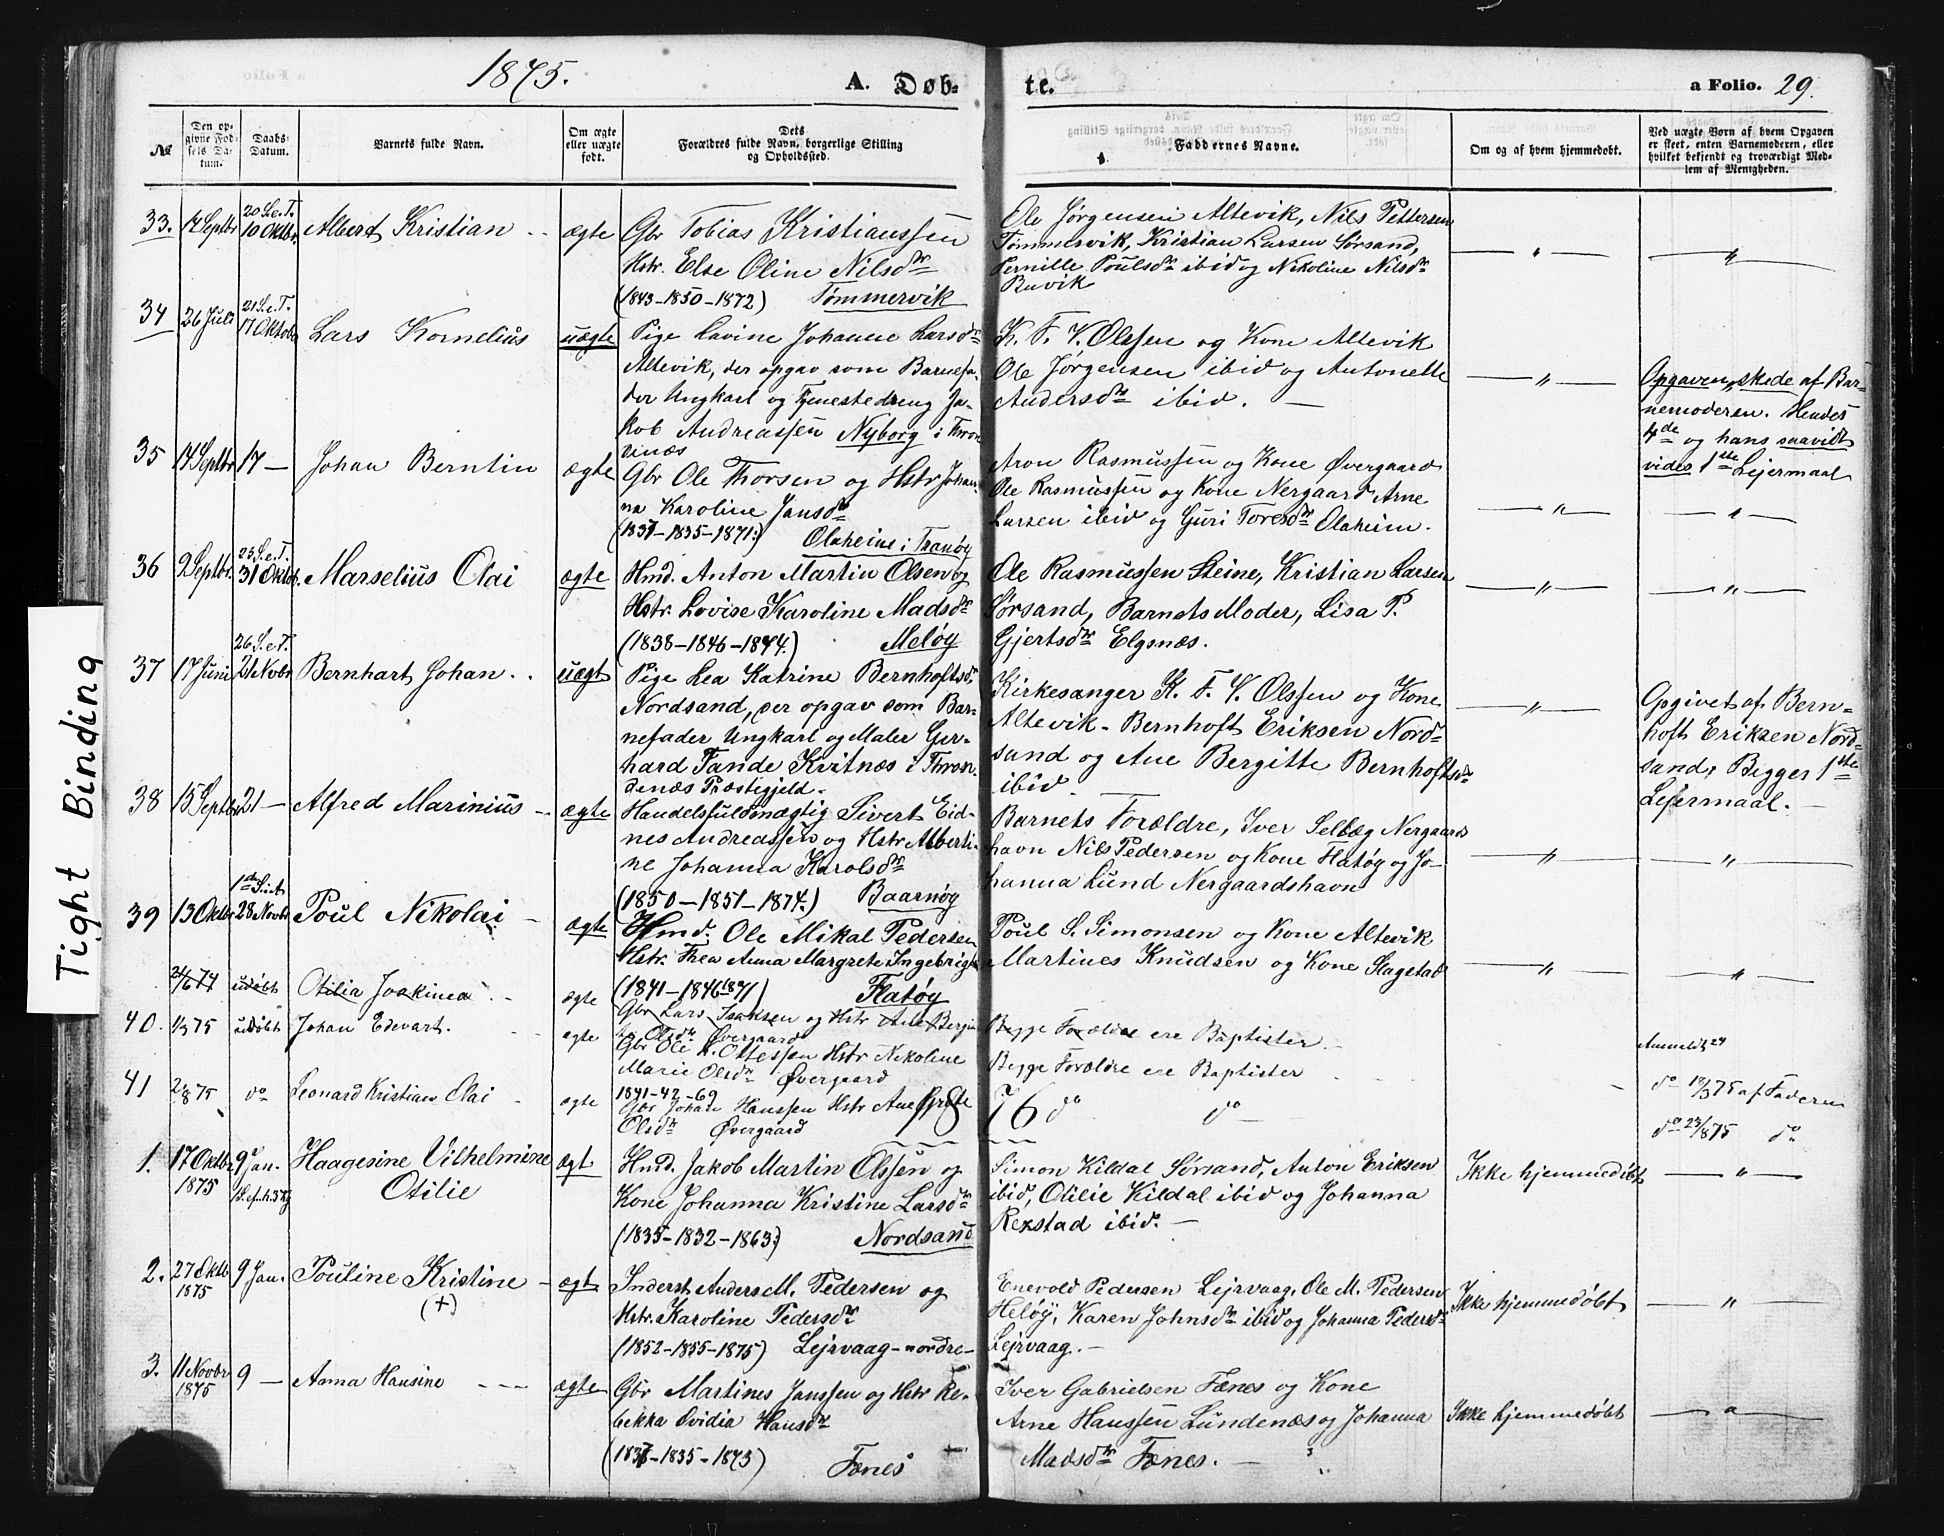 1875.
A. Døb-
te.
a Folio. 29.
№
Den op-
givne Fød-
sels Da-
tum.
Daabs-
Datum.
Barnets fulde Navn.
Om ægte
eller uægte
født.
Dets
Forældres fulde Navn, borgerlige Stilling
og Opholdssted.
Faddernes Navne.
Om og af hvem hjemmedøbt.
Ved uægte Børn af hvem Opgaven
er skeet, enten Barnemoderen, eller
hvilket bekjendt og troværdigt Med-
lem af Menigheden.
Tight Binding
33. 14 Septbr 20 S.e.T. 10 Oktbr. Albert Kristian ægte
Gbr Tobias Kristianssen
Hstr. Else Oline Nilsdtr
(1843-1850-1872) Tømmervik
Ole Jørgensen Altevik, Nils Pettersen
Tømmesvik, Kristian Larsen Sørsand,
Pernille Poulsdtr ibid og Nikoline Nilsdtr
Buvik
34 26 Juli 21 S.e.T. 17 Oktobr Lars Kornelius uægte
Pige Lavine Johanne Larsdtr
Altevik, der opgav som Barnefa-
der Ungkarl og Tjenestedreng Ja-
kob Andreassen Nyborg i Thron
dnæs
K. F. V. Olssen og Kone Altevik
Ole Jørgensen ibid og Antonette
Andersdtr ibid.
Opgaven skede af Bar-
nemoderen. Hendes
4de og hans saavidt
vides 1ste Lejermaal
35 14 Septbr 17 — Johan Berntin ægte
Gbr Ole Thorsen og Hstr Johan-
na Karoline Jansdtr
(1837-1835-1871.) Olaheim i Tranøy
Aron Rasmussen og Kone Øvergaard
Ole Rasmussen og Kone Nergaard Arne
Larsen ibid og Guri Toresdtr Olaheim.
36 2 Septbr. 23 S.e.T. 31 Oktob. Marselius Olai ægte
Hmd. Anton Martin Olsen og
Hstr. Lovise Karoline Madsdtr
(1838-1846-1874.) Meløy
Ole Rasmussen Steine, Kristian Larsen
Sørsand, Barnets Moder, Lisa P.
Gjertsdtr Elgsnæs.
37 17 Juni 26 S.e.T. 21 Novbr Bernhart Johan uægt
Pige Lea Katrine Bernhoftsd.
Nordsand, der opgav som Bar-
nefader Ungkarl og Maler Ger-
hard Fande Kvitnæs i Thron-
denæs Præstigjeld.
Kirkesanger K. F. V. Olssen og Kone
Altevik - Bernhoft Eriksen Nord-
sand og Ane Bergitte Bernhoftsdtr
ibid.
Opgivet af Bern-
hoft Eriksen Nord-
sand. Bigges 1ste
Lejermaal.
38 15 Septbr 21 — Alfred Marinius ægte
Handelsfuldmægtig Sivert Eid-
nes Andreassen og Hstr Alberti-
ne Johanna Karolsdtr
(1850-1851-1874.) Baarnøy
Barnets Forældre, Iver Selbæg Nergaards
havn Nils Pedersen og Kone Flatøy og Jo-
hanna Lund Nergaardshavn
39 13 Oktbr 1ste S.i.A 28 Novbr Poul Nikolai ægte
Hmd. Ole Mikal Pedersen
Hstr. Thea Anna Margrete Ingebrigts
(1841-1846 1871) Flatøy
Poul S. Simonsen og Kone Altevik
Martines Knudsen og Kone Slagstad
24/6 74 udøbt Otilia Joakimea ægte
Gbr Lars Isaksen og Hstr Ane Bergit-
te Olsdtr Øvergaard
Begge Forældre ere Baptister
40. 1/3 75 udøbt Johan Edevart. ægte
Gbr Ole K. Ottessen Hstr Nikoline
Marie Olsdtr Øvergaard
Begge Forældre ere Baptister
Anmeldt
do 19/3 75 af Faderen
41 2/8 75 do Leonard Kristian Olai ægte
1841-42-69
Gbr Johan Hanssen Hstr Ane Grete
Olsdtr Øvergaard
do do
do 23/8 75 do
1876
1. 17 Oktbr 1875 9 Jan. Haagesine Vilhelmine
Otilie ægt
Hmd. Jakob Martin Olssen og
Kone Johanna Kristine Larsdtr
(1835-1832-1863.) Nordsand
Simon Kildal Sørsand, Anton Eriksen
ibid, Otilie Kildal ibid og Johanna
Rexstad ibid.
Ikke hjemmedøbt
2. 27 Oktb 1875 9 Jan. Pouline Kristine
(+) ægt
Inderst Anders M. Pedersen og
Hstr. Karoline Pedersdtr
(1852-1855-1875) Lejrvaag-nordre-
Enevold Pedersen Lejrvaag, Ole M. Pedersen
Heløy, Karen Johnsdtr ibid og Johanna Pedersdtr
Lejrvaag.
Ikke hjemmedøbt
3. 11 Novbr 1875 9 — Anna Hansine ægte
Gbr Martines Janssen og Hstr Re-
bekka Ovidia Hansdtr
(1837-1835-1873) Fænes
Iver Gabrielsen Fænes og Kone
Arne Hanssen Lundenæs og Johanna
Madsdtr Fænes.
Ikke hjemmedøbt